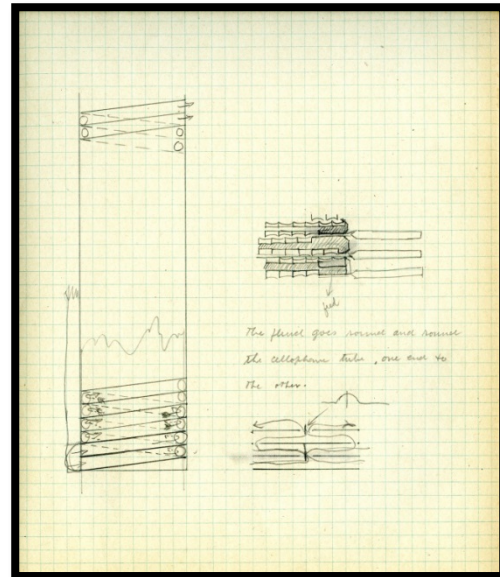 gel
The fluid goes round and round
the cellophane tube, one end to
the other.